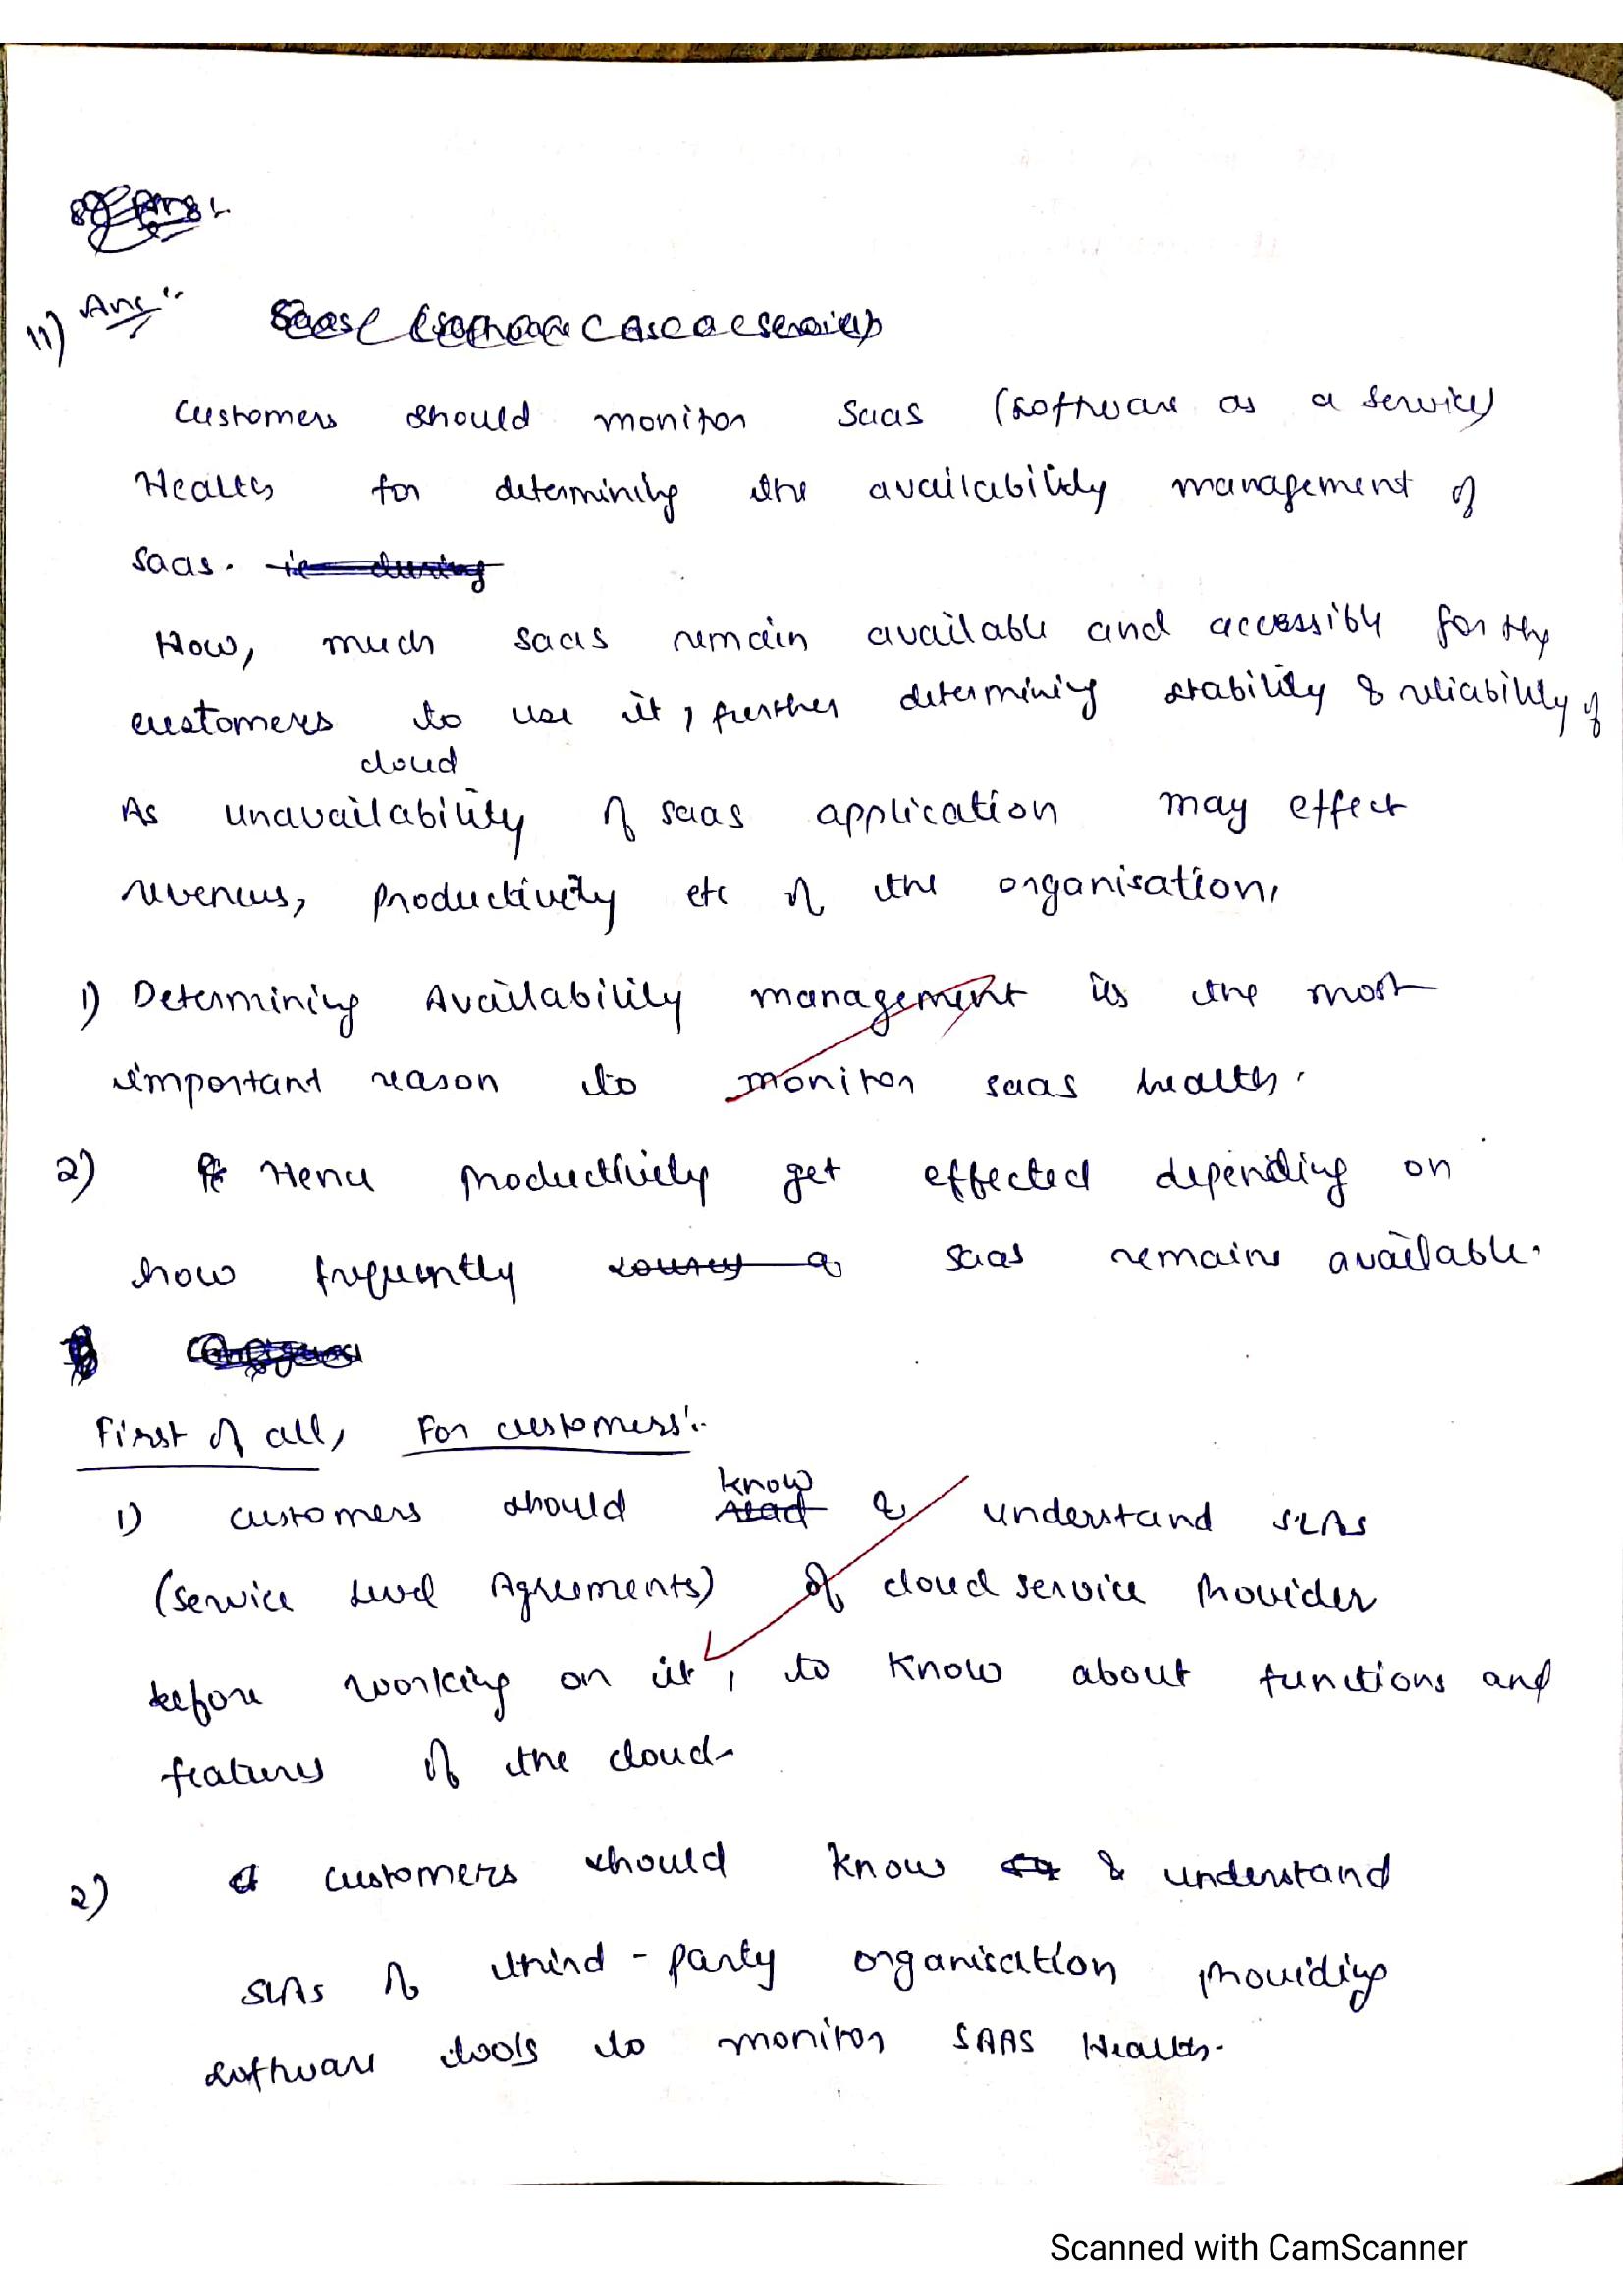 11) Ans :-
Customers should monitor Saas (software as a service)
Health for determining the availability management of
Saas.
How, much saas remain available and accessible for the
customers to use it, further determining stability & reliability of
cloud
As unavailability of saas application may effect
revenues, productivity etc of the organisation.
1) Determining Availability management is the most
important reason to monitor saas health.
2) Hence productivity get effected depending on
how frequently saas remains available.
First of all, For customers:-
know
1) customers should & understand SLAs
(Service Level Agreements) of cloud service provider
before working on it, to know about functions and
features of the cloud.
2) customers should know & understand
SLAs of third-party organisation providing
software tools to monitor SAAS Health.
Scanned with CamScanner